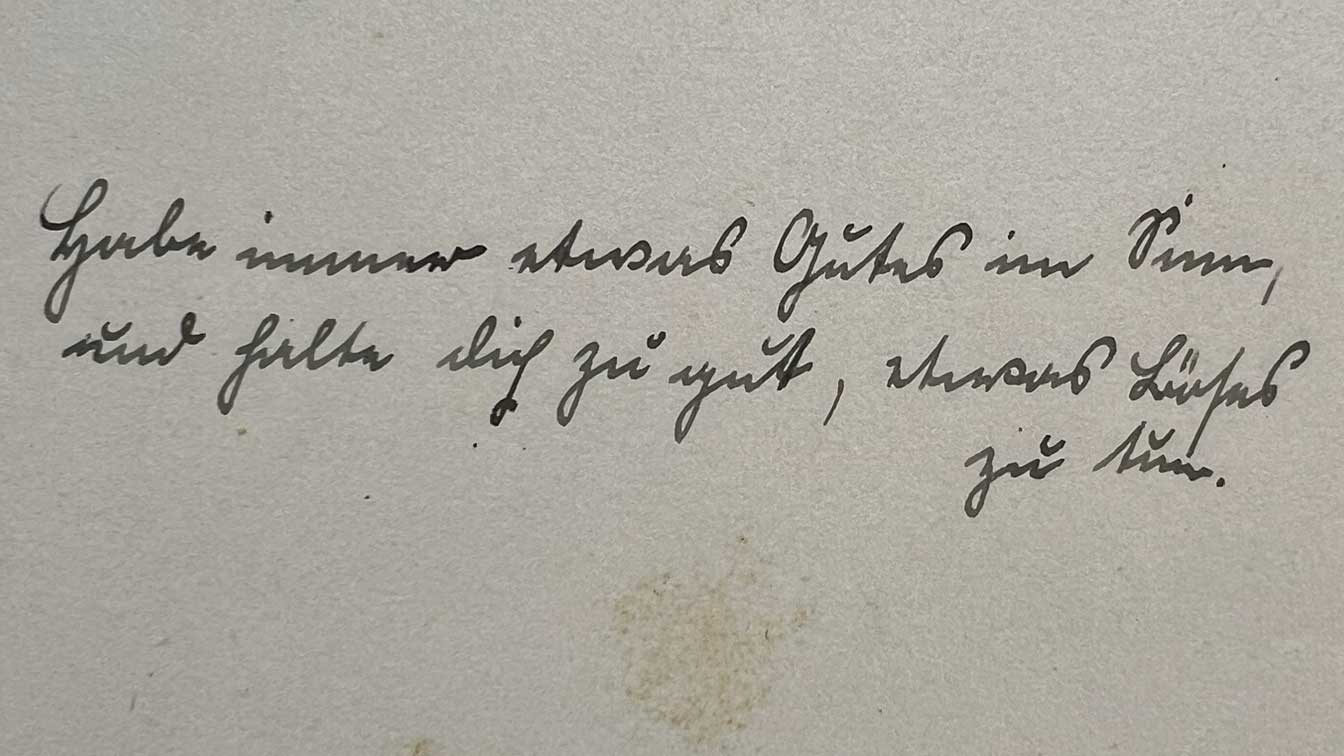 Habe immer etwas Gutes im Sinn,
und halte dich zu gut, etwas Böses
zu tun.